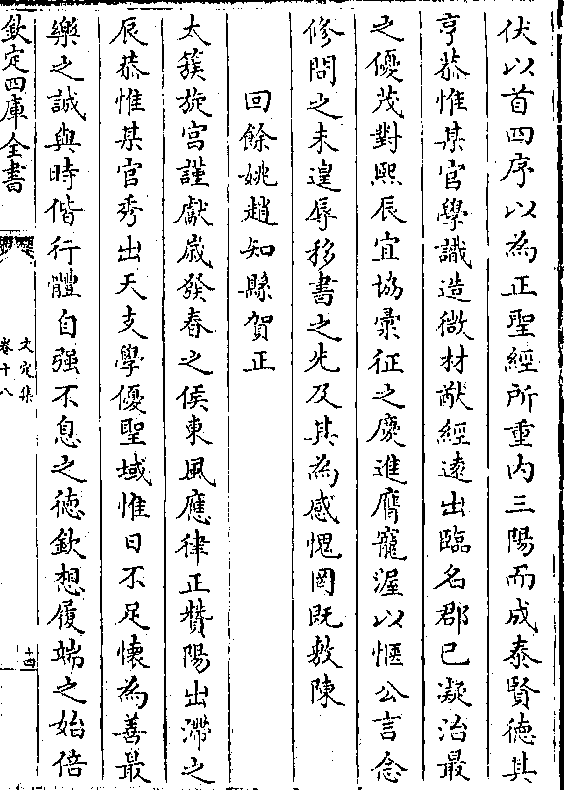 伏以首四序以為正聖經所重内三陽而成泰賢徳其
亨恭惟某官學識造微材猷經遠出臨名郡已凝治最
之優茂對熙辰宜協彚征之慶進膺寵渥以愜公言念
修問之未遑辱移書之先及其為感愧罔既敷陳
回餘姚趙知縣賀正
太簇旋宫謹獻歲發春之侯東風應律正贊陽出滯之
辰恭惟某官秀出天支學優聖域惟日不足懐為善最
樂之誠與時偕行體自强不息之徳欽想履端之始倍
欽定四庫全書
文定集
卷十八
十四